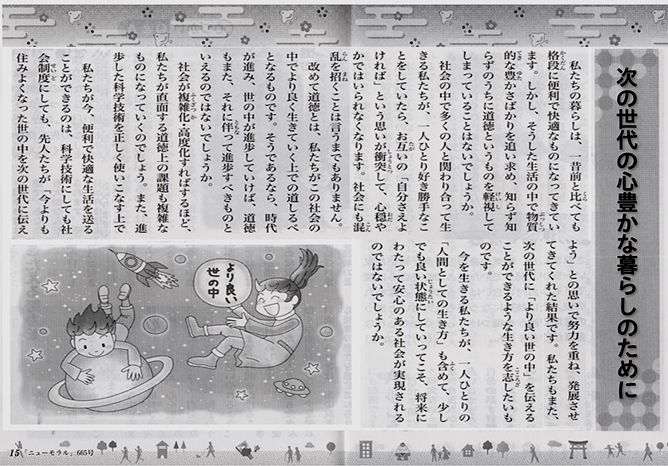 次の世代の心豊かな暮らしのために
私たちの暮らしは、一昔前と比べても
格段に便利で快適なものになってきてい
ます。しかし、そうした生活の中で物質
的な豊かさばかりを追い求め、知らず知
らずのうちに道徳というものを軽視して
しまっていることはないでしょうか。
社会の中で多くの人と関わり合って生
きる私たちが、一人ひとり好き勝手なこ
とをしていたら、お互いの「自分さえよ
ければ」という思いが衝突して、心穏や
かではいられなくなります。社会にも混
乱を招くことは言うまでもありません。
改めて道徳とは、私たちがこの社会の
中でより良く生きていく上での道しるべ
となるものです。そうであるなら、時代
が進み、世の中が進歩していけば、道徳
もまた、それに伴って進歩すべきものと
いえるのではないでしょうか。
社会が複雑化・高度化すればするほど、
私たちが直面する道徳上の課題も複雑な
ものになっていくのでしょう。また、進
歩した科学技術を正しく使いこなす上で
私たちが今、便利で快適な生活を送る
ことができるのは、科学技術にしても社
会制度にしても、先人たちが「今よりも
住みよくなった世の中を次の世代に伝え
よう」との思いで努力を重ね、発展させ
てきてくれた結果です。私たちもまた、
次の世代に「より良い世の中」を伝える
ことができるような生き方を志したいも
のです。
今を生きる私たちが、一人ひとりの
「人間としての生き方」も含めて、少し
でも良い状態にしていってこそ、将来に
わたって安心のある社会が実現される
のではないでしょうか。
より良い
世の中
15「ニューモラル」665号